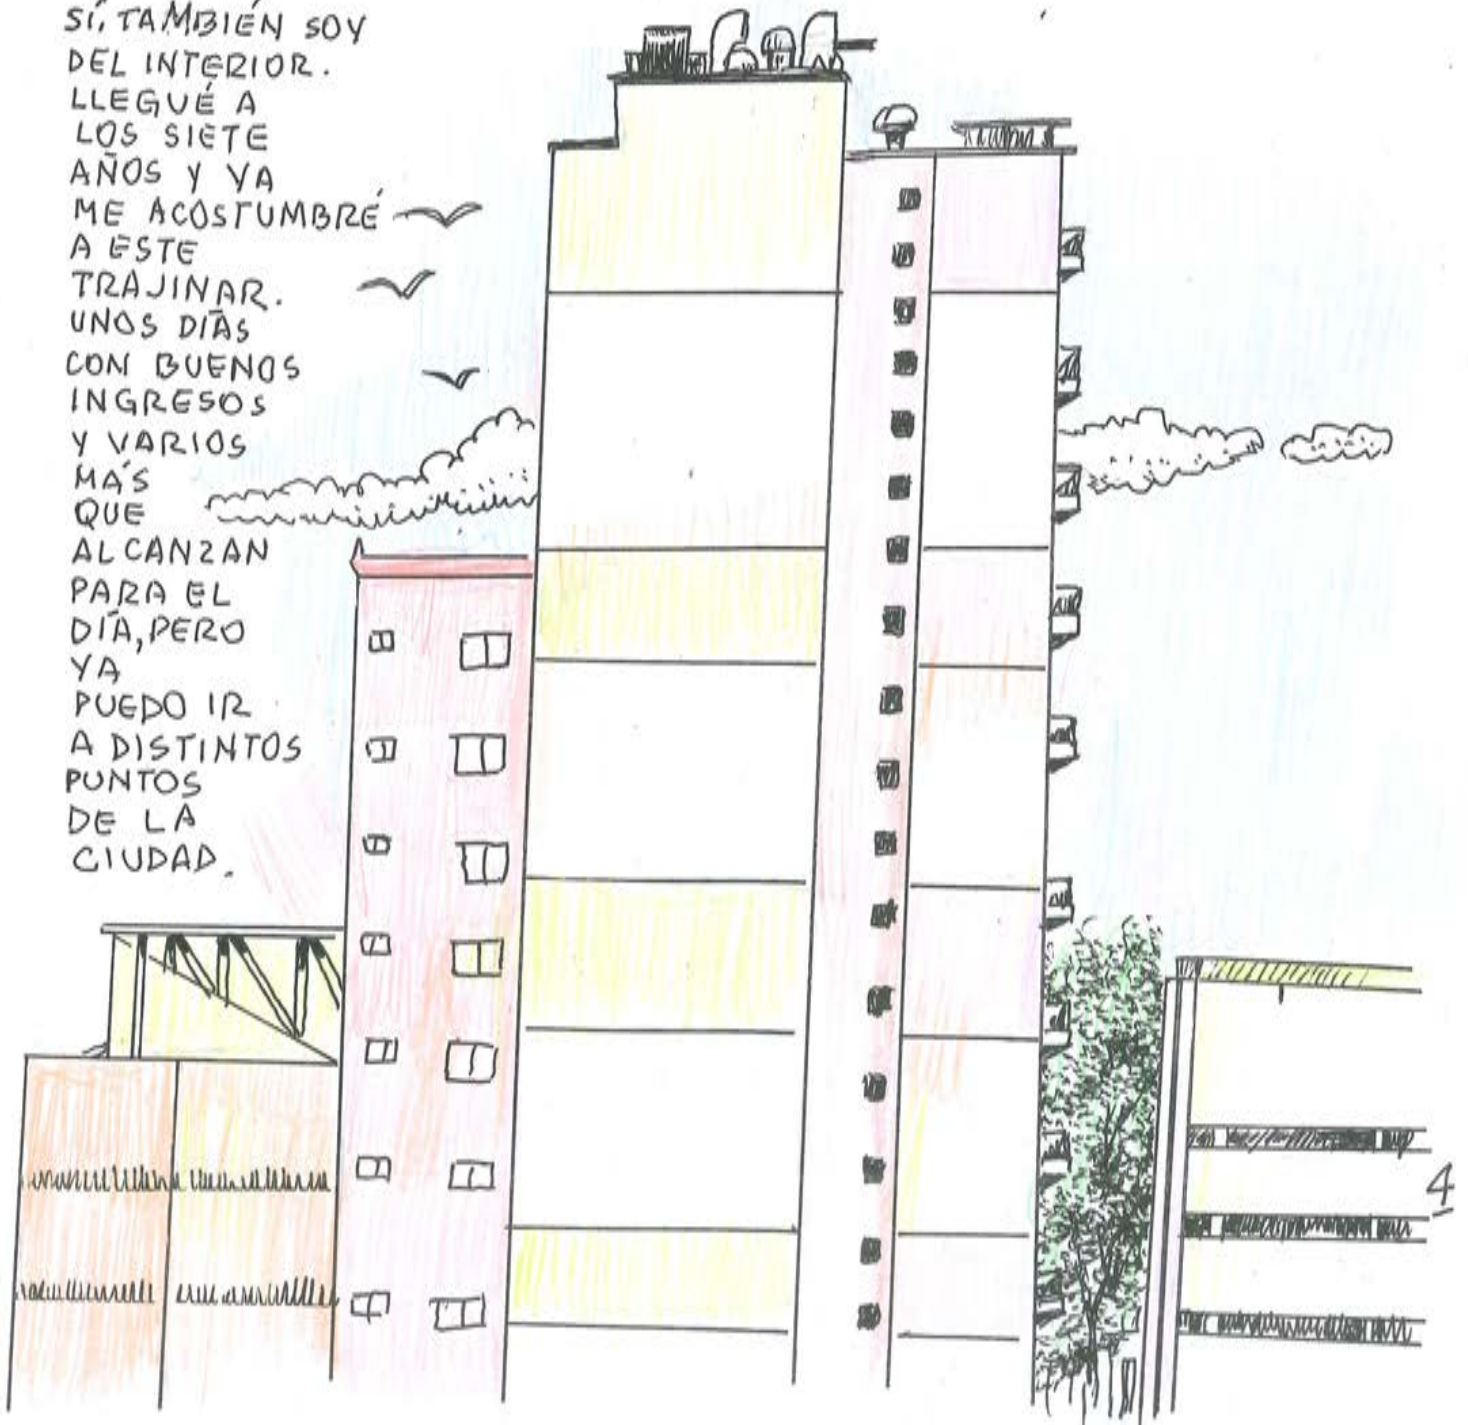 SÍ, TAMBIÉN SOY
DEL INTERIOR.
LLEGUÉ A
LOS SIETE
AÑOS Y YA
ME ACOSTUMBRÉ
A ESTE
TRAJINAR.
UNOS DÍAS
CON BUENOS
INGRESOS
Y VARIOS
MÁS
QUE
ALCANZAN
PARA EL
DÍA, PERO
YA
PUEDO IR
A DISTINTOS
PUNTOS
DE LA
CIUDAD.
4